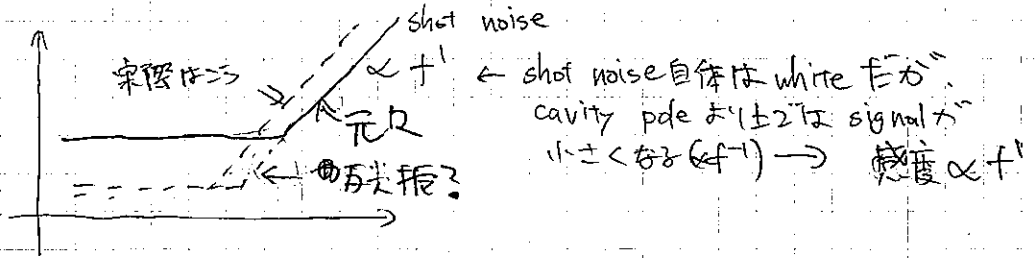 shot noise
実際はこう
∝ f¹ ← shot noise 自体は white だが、
cavity pole より上では signal が
元々
小さくなる(∝f⁻¹) → 感度 ∝ f¹
←